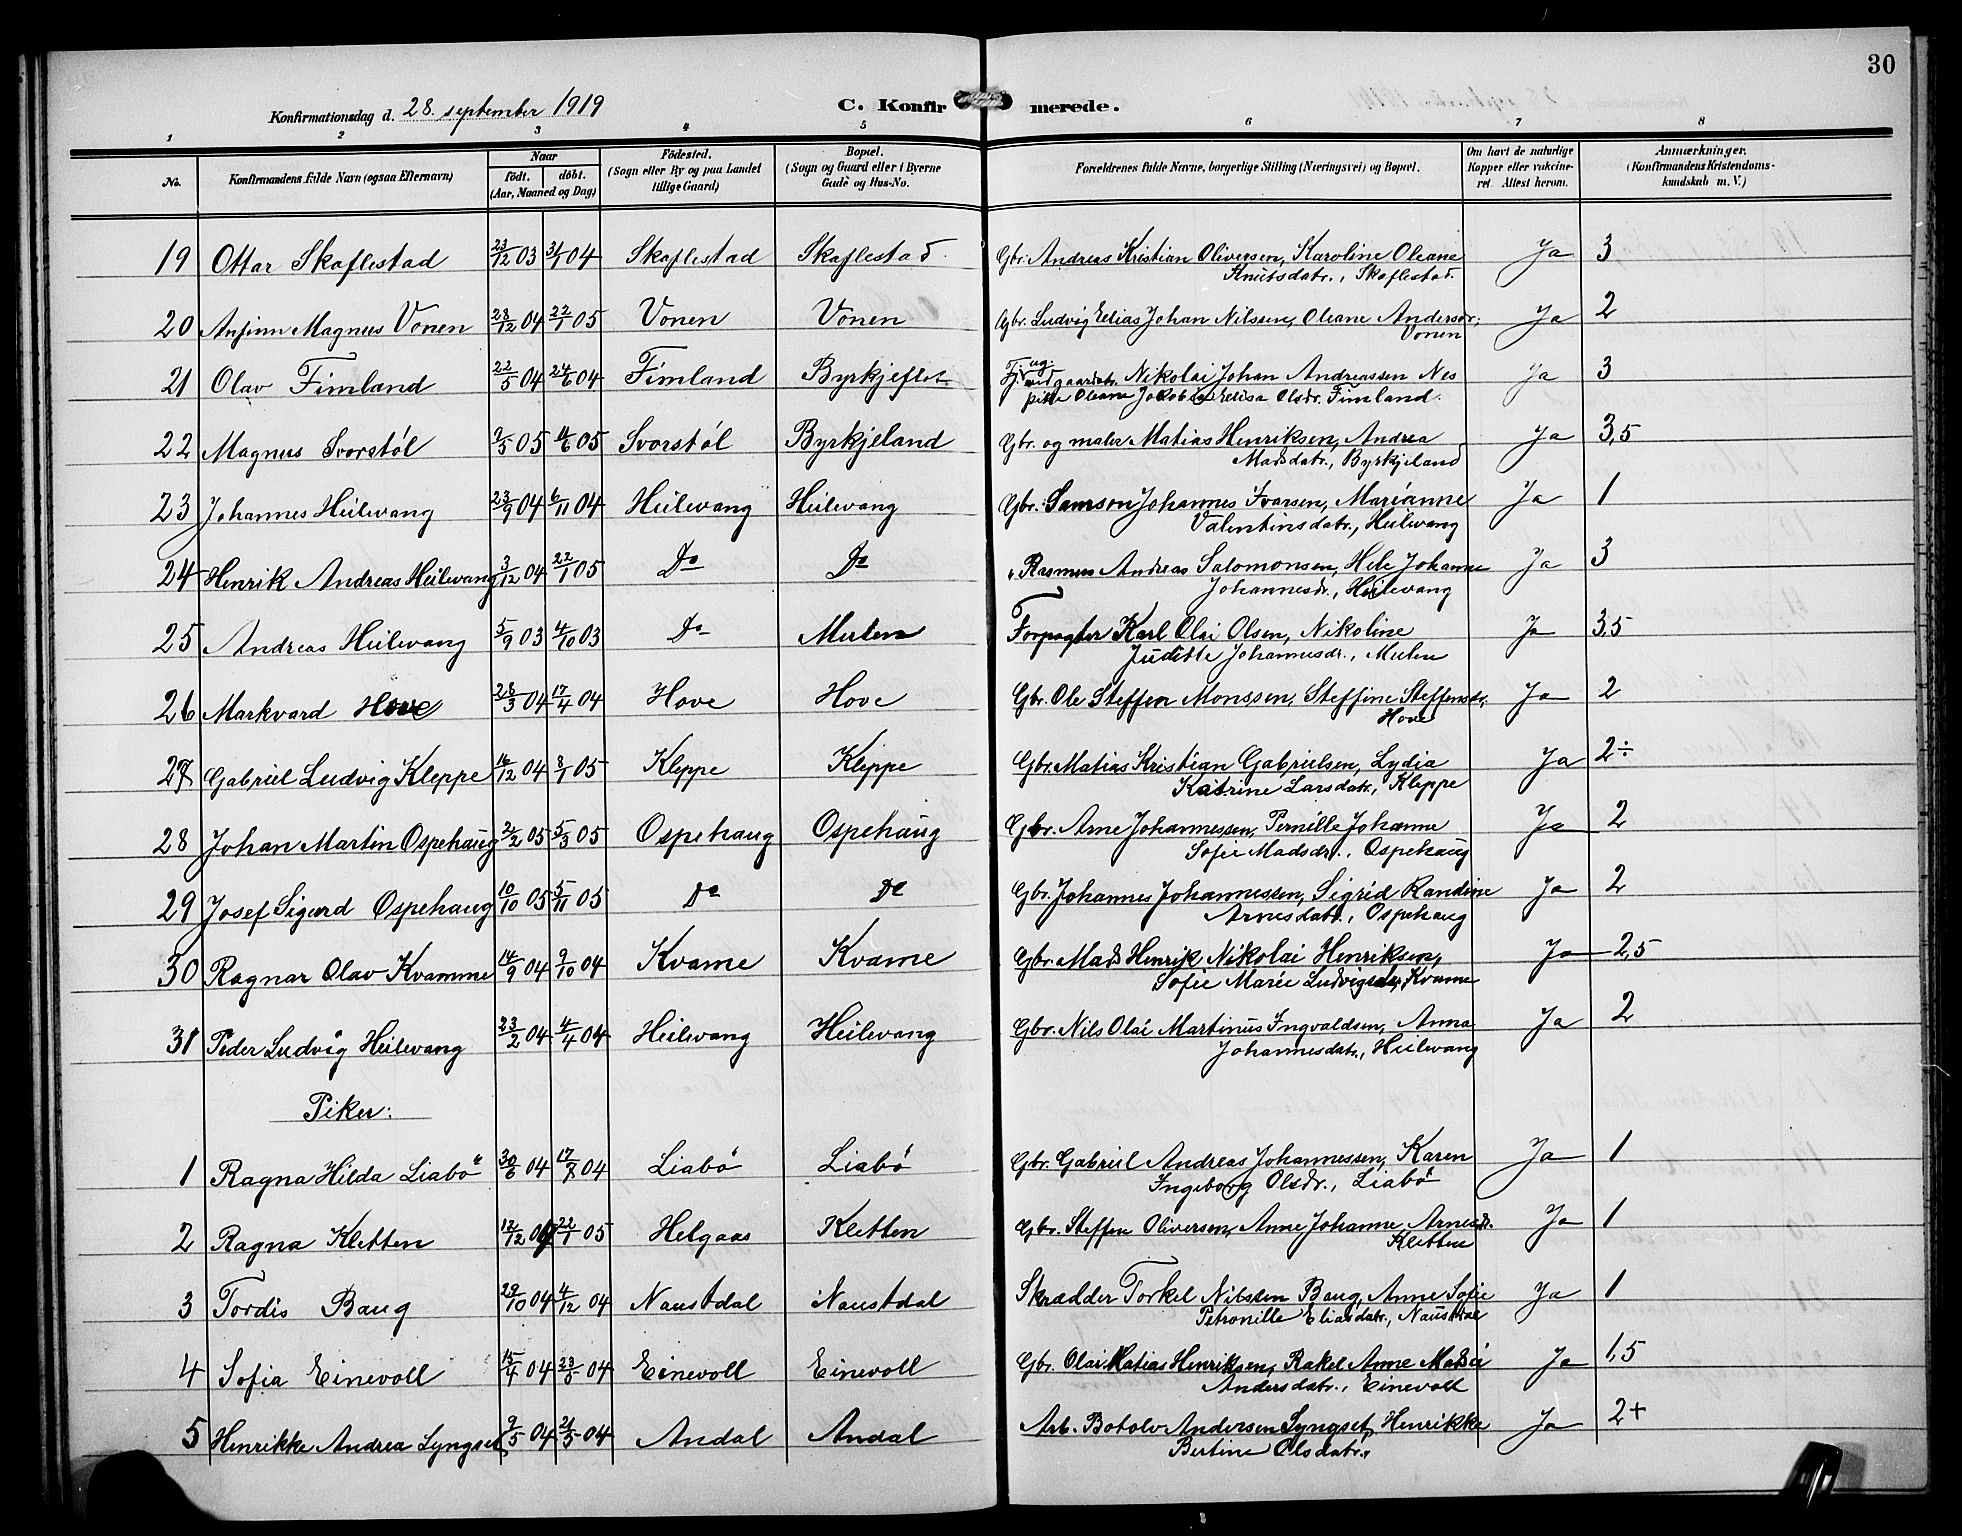 30
Konfirmationsdag d. 28. september 1919
C. Konfirmerede.
1 2 3 4 5 6 7 8
No.
Konfirmandens fulde Navn (ogsaa Efternavn)
Naar
født. døbt.
(Aar, Maaned og Dag)
Fødested.
(Sogn eller By og paa Landet
tillige Gaard)
Bopæl.
(Sogn og Gaard eller i Byerne
Gade og Hus-No.
Forældrenes fulde Navne, borgerlige Stilling (Næringsvei) og Bopæl.
Om havt de naturlige
Kopper eller vakcine-
ret. Attest herom.
Anmærkninger.
(Konfirmandens Kristendoms-
kundskab m. V.)
19 Ottar Skaflestad 23/12 03 31/1 04 Skaflestad Skaflestad Gbr. Andreas Kristian Oliversen, Karoline Oleane Ja 3
Knutsdatr., Skaflestad.
20 Anfinn Magnus Vonen 28/12 04 22/1 05 Vonen Vonen Gbr. Ludvig Elias Johan Nilssen, Oleane Andersdr., Ja 2
Vonen
21 Olav Fimland 22/5 04 24/6 04 Fimland Byrkjeflot Nikolai Johan Andreassen Nes Ja 3
Oleane Jakobine Elisa Olsdr. Fimland.
22 Magnus Svorstøl 9/5 05 11/6 05 Svorstøl Byrkjeland Gbr. og maler Matias Henriksen, Andrea Ja 3,5
Madsdatr., Byrkjeland
23 Johannes Heilevang 23/9 04 6/11 04 Heilevang Heilevang Gbr. Samson Johannes Ivarsen, Marianne Ja 1
Valentinsdatr., Heilevang
24 Henrik Andreas Heilevang 3/12 04 22/1 05 Do Do " Rasmus Andreas Salomonsen, Hele Johanne Ja 3
Johannesdr., Heilevang
25 Andreas Heilevang 5/9 03 4/10 03 Do Mulen Forpagter Karl Olai Olsen, Nikoline Ja 3,5
Juditte Johannesdr., Mulen
26 Markvard Hove 28/3 04 17/4 04 Hove Hove Gbr. Ole Steffen Monssen, Steffine Steffensdr., Ja 2
Hove
27 Gabriel Ludvig Kleppe 16/12 04 8/1 05 Kleppe Kleppe Gbr. Matias Kristian Gabrielsen, Lydia Ja 2÷
Katrine Larsdatr., Kleppe
28 Johan Martin Ospehaug 2/2 05 5/3 05 Ospehaug Ospehaug Gbr. Arne Johannessen, Pernille Johanne Ja 2
Sofie Madsdr., Ospehaug
29 Josef Sigurd Ospehaug 10/10 05 5/11 05 Do Do Gbr. Johannes Johannessen, Sigrid Randine Ja 2
Arnesdatr., Ospehaug
30 Ragnar Olav Kvamme 14/9 04 9/10 04 Kvame Kvame Gbr. Mads Henrik Nikolai Henriksen, Ja 2,5
Sofie Marie Ludvigsdr., Kvame
31 Peder Ludvig Heilevang 23/2 04 4/4 04 Heilevang Heilevang Gbr. Nils Olai Martinus Ingvaldsen, Anna Ja 2
Johannesdatr., Heilevang
Piker:
1 Ragna Hilda Liabø 30/6 04 17/7 04 Liabø Liabø Gbr. Gabriel Andreas Johannessen, Karen Ja 1
Ingeborg Olsdr., Liabø
2 Ragna Kletten 12/12 04 22/1 05 Helgaas Kletten Gbr. Steffen Oliversen, Anne Johanne Arnesdr. Ja 1
Kletten
3 Tordis Baug 29/10 04 4/12 04 Naustdal Naustdal Skrædder Torkel Nilssen Baug, Anne Sofie Ja 1
Petronille Eliasdatr., Naustdal
4 Sofia Einevoll 15/4 04 23/5 04 Einevoll Einevoll Gbr. Olai Matias Henriksen, Rakel Anne Ja 1,5
Andersdatr., Einevoll
5 Henrikke Andrea Lyngset 9/5 04 21/5 04 Andal Andal Arb. Botolv Andersen Lyngset, Henrikke Ja 2+
Bertine Olsdatr.,